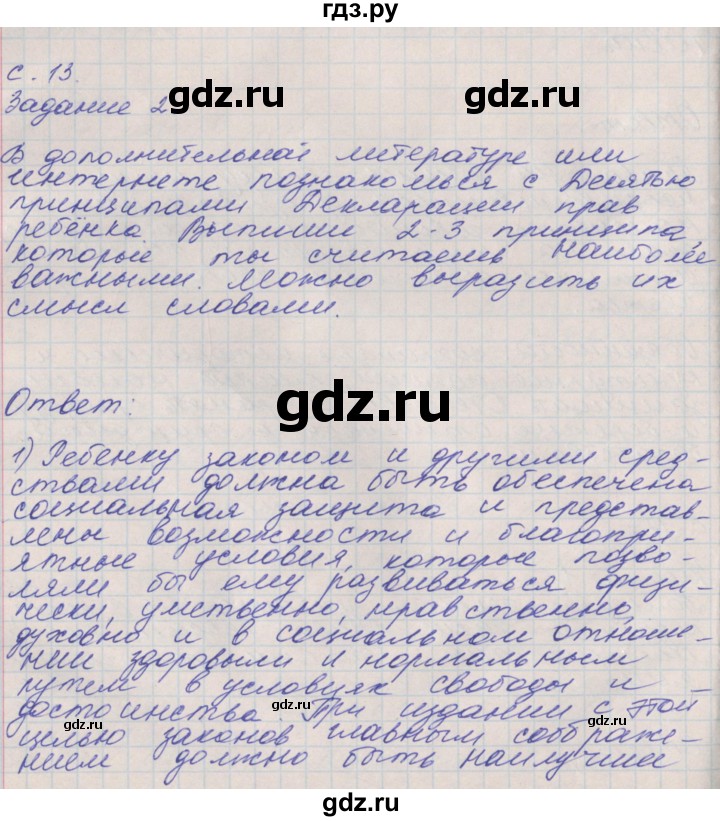 гдз.ру
с. 13.
gdz.ru
gdz.ru
Задание 2
В дополнительной литературе или
интернете познакомься с Десятью
принципами Декларации прав
ребёнка Выпиши 2-3 принципа,
которые ты считаешь наиболее
важными. Можно выразить их
смысл словами.
gdz.ru
Ответ:
1) Ребенку законом и другими сред-
ствами должна быть обеспечена
социальная защита и представ-
лены возможности и благопри-
gdz.ru
gdz.ru
ятные условия, которые позво-
ляли бы ему развиваться физи-
чески, умственно, нравственно,
духовно и в социальном отноше-
нии здоровыми и нормальным
путем в условиях свободы и
достоинства. При издании с этой
gdz.ru
gdz.ru
gdz.ru
целью законов главным соображе-
нием должно быть наилучшее
gdz.ru